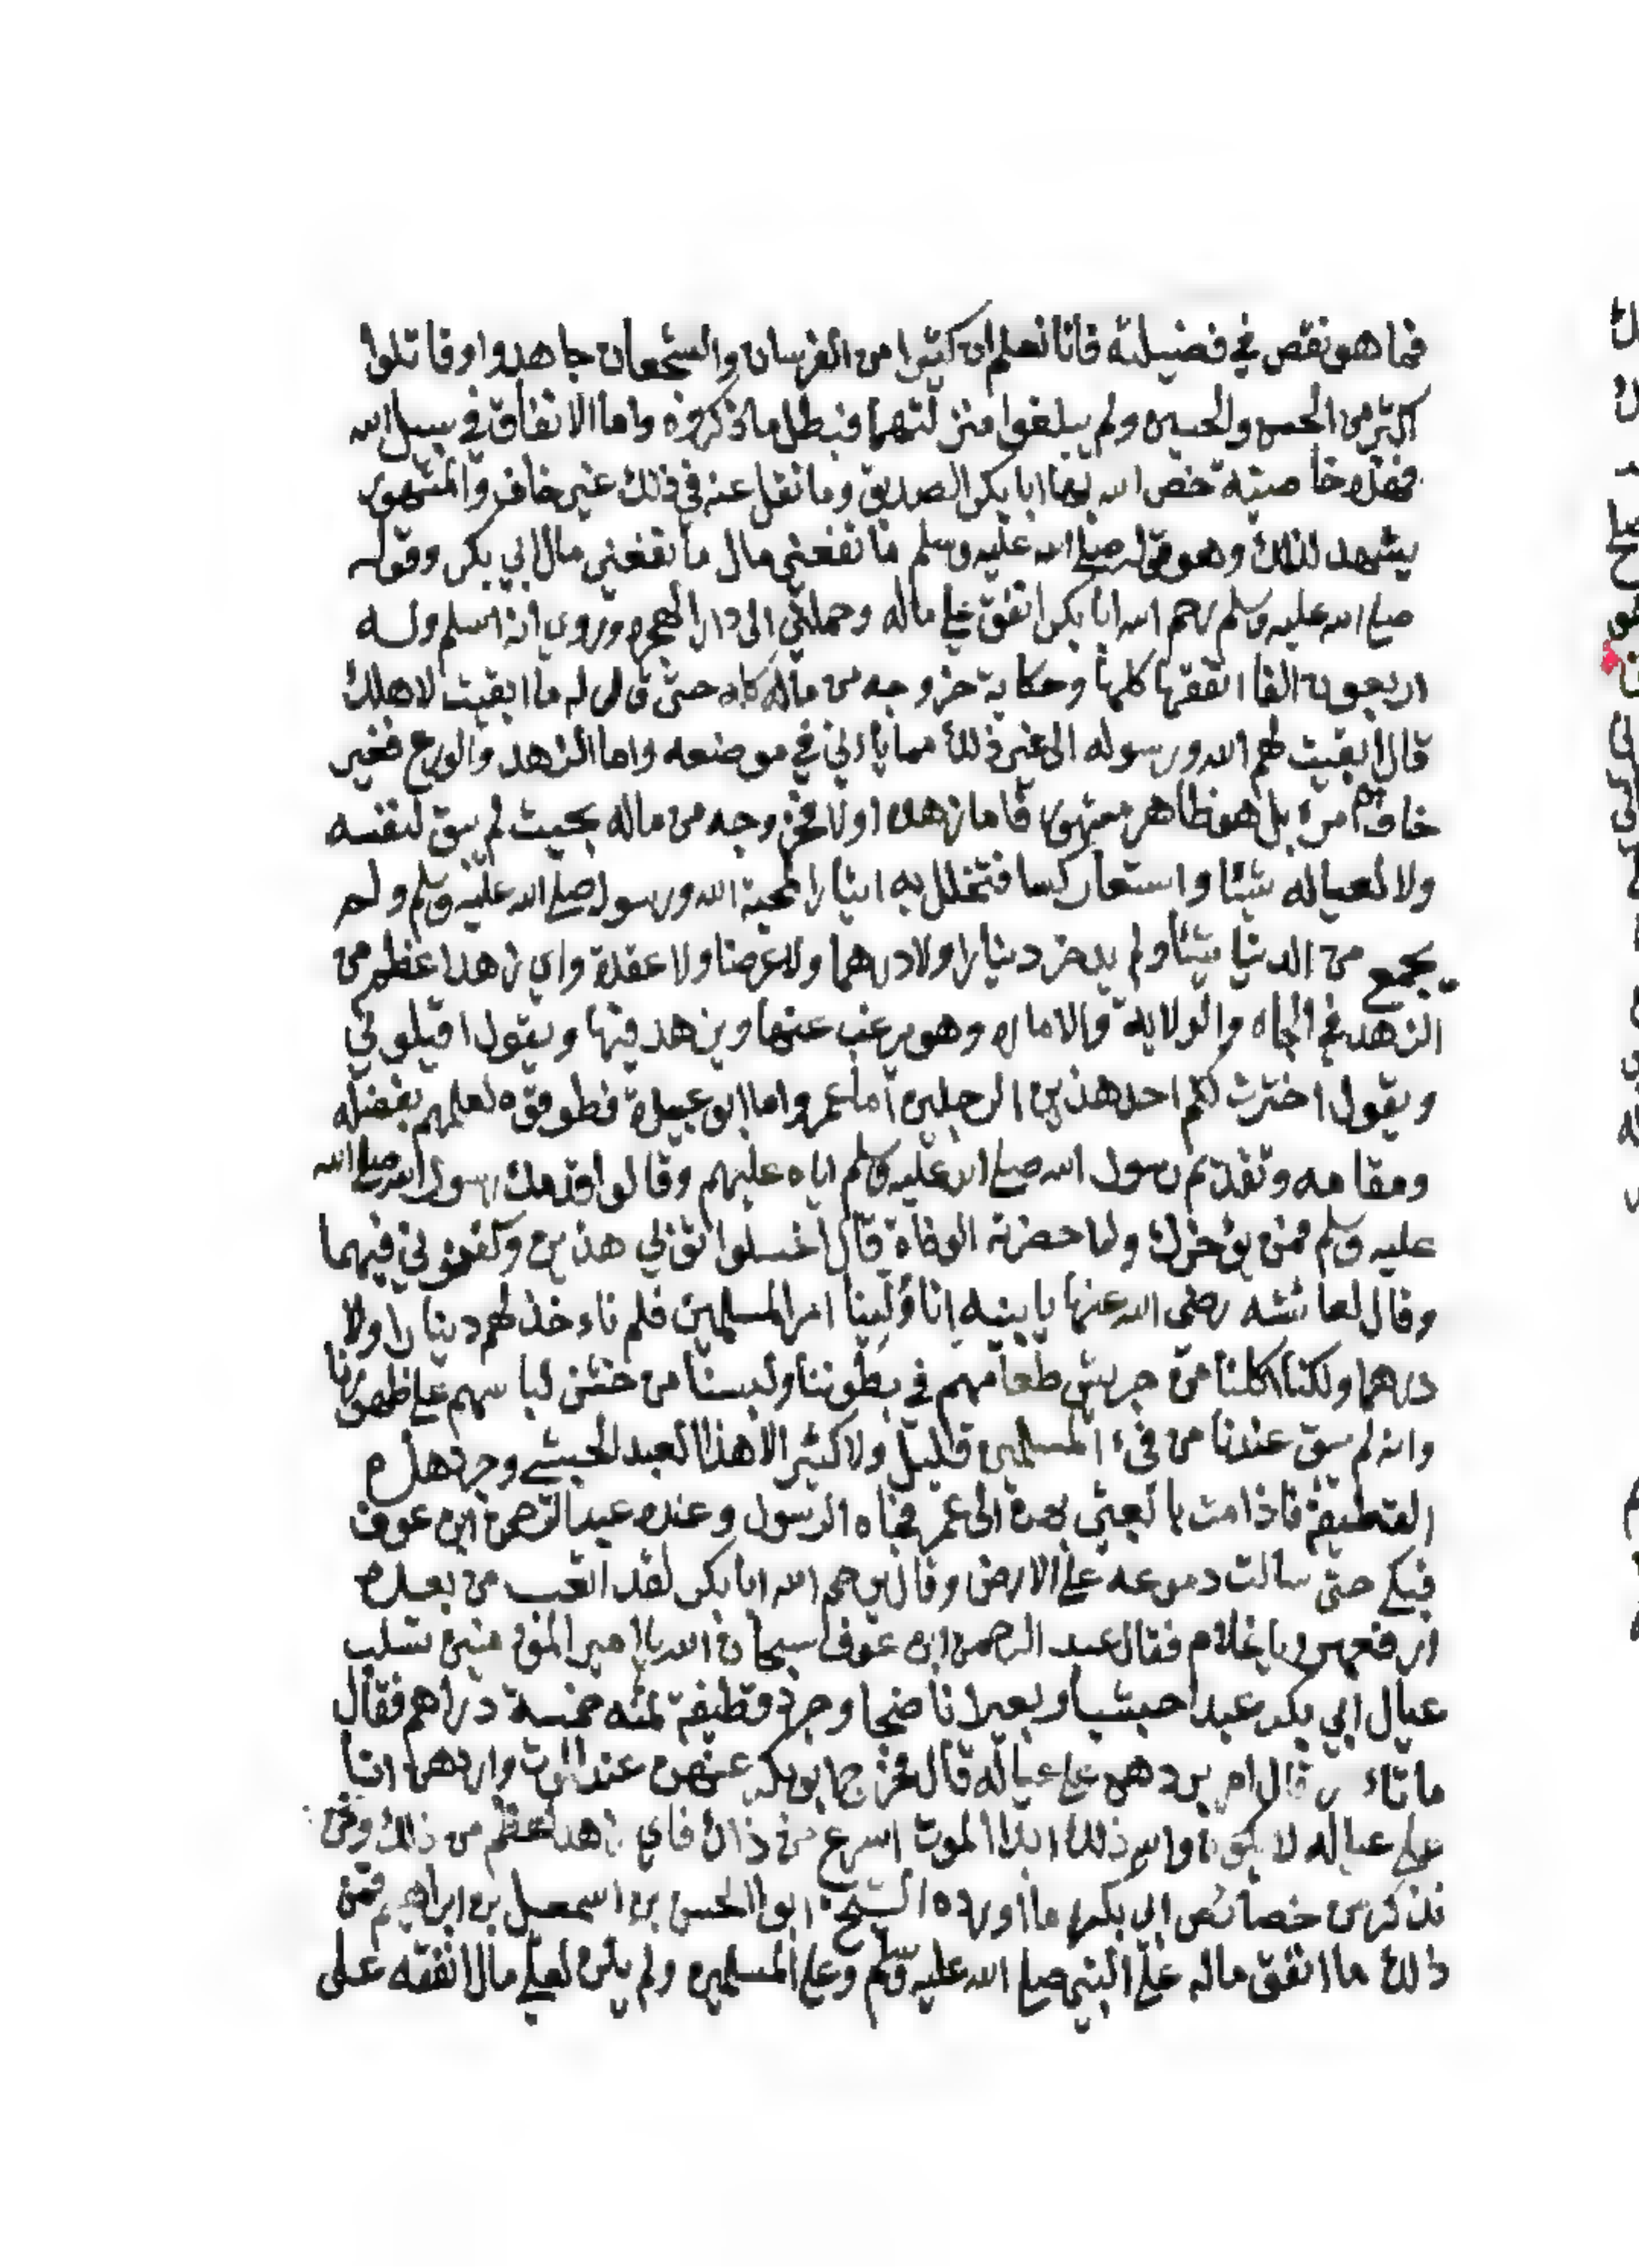 فما هو نقص في فضيلته فانا نعلم ان كثيرا من الفرسان والشجعان جاهدوا وقاتلوا
اكثر من الحسن والحسين ولم يبلغوا منزلتهما فبطل ما ذكروه واما الانفاق في سبيل الله
فهذه خاصية خص الله بها ابا بكر الصديق وما نقل عنه في ذلك غير خاف والمشهور
يشهد لذلك وهو قوله صلى الله عليه وسلم ما نفعني مال ما نفعني مال ابي بكر وقوله
صلى الله عليه وسلم رحم الله ابا بكر انفق علي ماله وحملني الى دار الهجره وروي انه اسلم وله
اربعون الفا انفقها كلها وحكاية خروجه من ماله كله حتى قال له ما ابقيت لاهلك
قال ابقيت لهم الله ورسوله الى غير ذلك مما ياءتي في موضعه واما الزهد والورع فغير
خاف امره بل هو ظاهر مشهور فاما زهده اولا فخروجه من ماله بحيث لم يبق لنفسه
ولا لعياله شيئا واستعار كسا فتخلل به ايثارا لمحبة الله ورسوله صلى الله عليه وسلم ولم
يجمع من الدنيا شيئا ولم يدخر دينارا ولا درهما ولا عرضا ولا عقدة واي زهد اعظم من
الزهد في الجاه والولاية والاماره وهو يرغب عنها ويزهد فيها ويقول اقيلوني
ويقول اخترت لكم احد هذين الرجلين اما عمر واما ابو عبيدة فطوقوه لعلمهم بفضله
ومقامه وتقديم رسول الله صلى الله عليه وسلم اياه عليهم وقالوا قدمك رسول الله صلى الله
عليه وسلم فمن يؤخرك ولما حضرته الوفاة قال اغسلوا ثوبي هذين وكفنوني فيهما
وقال لعائشه رضى الله عنها يا بنيه انا وُلِّينا امر المسلمين فلم ناءخذ لهم دينارا ولا
درهما ولكنا اكلنا من جريش طعامهم في بطوننا ولبسنا من خشن لباسهم على ظهورنا
وانه لم يبق عندنا من فيء المسلمين قليل ولا كثير الا هذا العبد الحبشي وجرد هذه
القطيفة فاذا مت فابعثي بهن الى عمر فجاه الرسول وعنده عبد الرحمن ابن عوف
فبكى حتى سالت دموعه على الارض وقال يرحم الله ابا بكر لقد اتعب من بعده
ارفعهن يا غلام فقال عبد الرحمن ابن عوف سبحان الله يا امير المؤمنين تسلب
عيال ابي بكر عبدا حبشيا وبعيرا ناضحا وجرد قطيفة ثمنه خمسة دراهم فقال
ما تاءمر قال ام بردهن على عياله قال يخرجها ابو بكر عنهن عند الموت واردهن انا
على عياله لا يكون والله ذلك ابدا الموت اسرع من ذاك فاي زهد اعظم من ذلك ونحن
نذكر من خصائص ابي بكر ما اورده الشيخ ابو الحسن بن اسمعيل بن ابراهيم فمن
ذلك ما انفق ماله على النبي صلى الله عليه وسلم وعلى المسلمين ولم يكن لعلي مال انفقه على